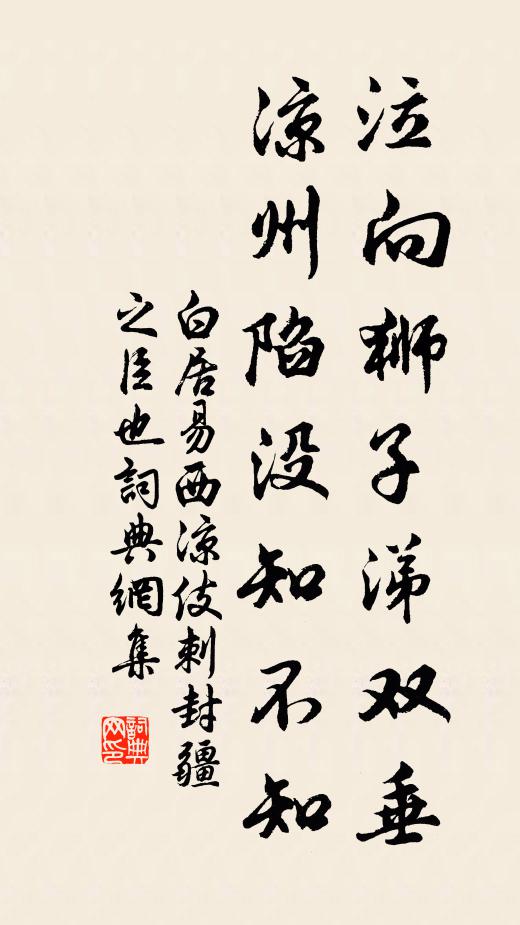 泣向狮子涕双垂
凉州陷没知不知
白居易西凉伎刺封疆
之臣也詞典網集
詞典
网印